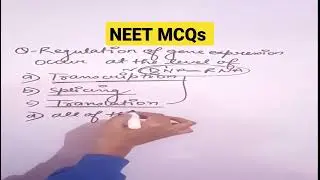 NEET MCQs
Q- Regulation of gene expression
occur at the level of
a) Transcription DNA → RNA
b) Splicing
c) Translation
d) all of th